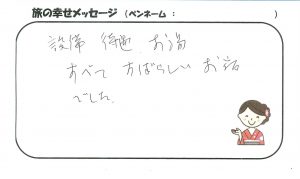 旅の幸せメッセージ (ペンネーム: )
設備 待遇 お湯
すべて すばらしい お宿
でした。